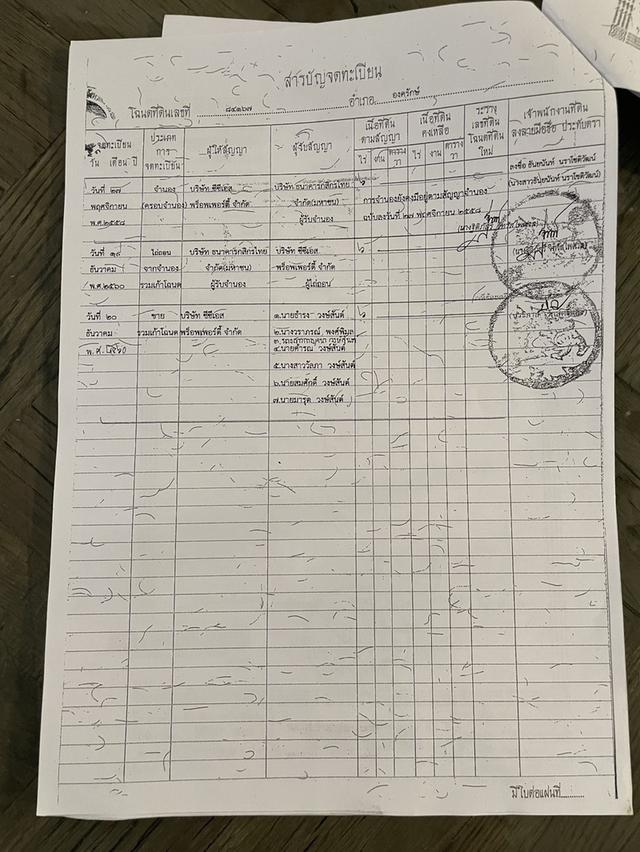 สารบัญจดทะเบียน
โฉนดที่ดินเลขที่ ๘๔๑๖๗ อำเภอ องครักษ์
จดทะเบียน วัน เดือน ปี
ประเภทการจดทะเบียน
ผู้ให้สัญญา
ผู้รับสัญญา
เนื้อที่ดินตามสัญญา
ไร่ งาน ตารางวา
เนื้อที่ดินคงเหลือ
ไร่ งาน ตารางวา
ระวาง เลขที่ดิน โฉนดที่ดินใหม่
เจ้าพนักงานที่ดิน ลงลายมือชื่อ ประทับตรา
วันที่ ๒๗ จำนอง บริษัท ซีซีเอส บริษัท ธนาคารกสิกรไทย
พฤศจิกายน (ครอบจำนอง) พร็อพเพอร์ตี้ จำกัด จำกัด(มหาชน) การจำนองยังคงมีอยู่ตามสัญญาจำนอง
พ.ศ.๒๕๕๘ ผู้รับจำนอง ฉบับลงวันที่ ๒๗ พฤศจิกายน ๒๕๕๘
ลงชื่อ ธันยนันท์ นราโชติวัฒน์
(นางสาวธันยนันท์ นราโชติวัฒน์)
วันที่ ๑๙ ไถ่ถอน บริษัท ธนาคารกสิกรไทย บริษัท ซีซีเอส
ธันวาคม จากจำนอง จำกัด(มหาชน) พร็อพเพอร์ตี้ จำกัด
พ.ศ.๒๕๖๐ รวมเก้าโฉนด ผู้รับจำนอง ผู้ไถ่ถอน
วันที่ ๒๐ ขาย บริษัท ซีซีเอส ๑.นายธำรง วงษ์สันต์
ธันวาคม รวมเก้าโฉนด พร็อพเพอร์ตี้ จำกัด ๒.นางวราภรณ์ พงศ์พิมล
พ.ศ.๒๕๖๐ ๔.นายดำรณ วงษ์สันต์
๕.นางสาววัลภา วงษ์สันต์
๖.นายสมศักดิ์ วงษ์สันต์
๗.นายมารุต วงษ์สันต์
มีใบต่อแผ่นที่